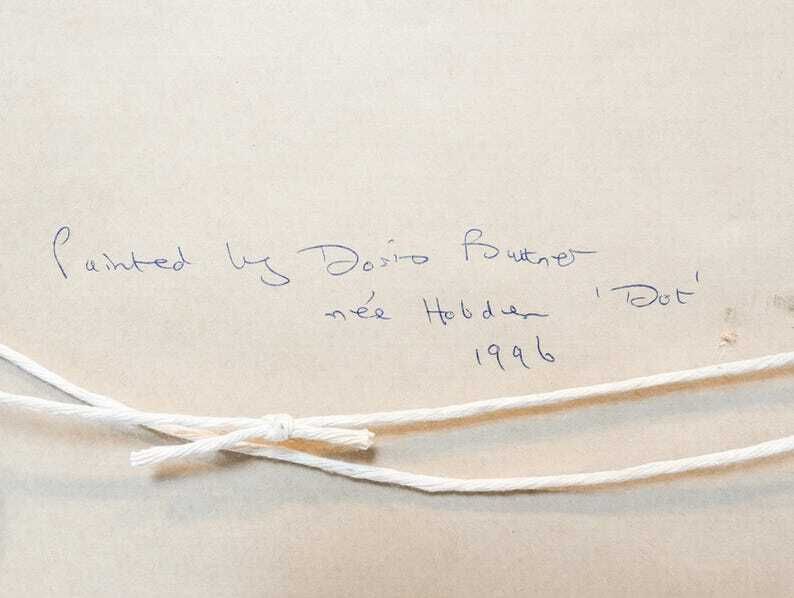 Painted by Doris Buttner
née Hobden 'Dot'
1996